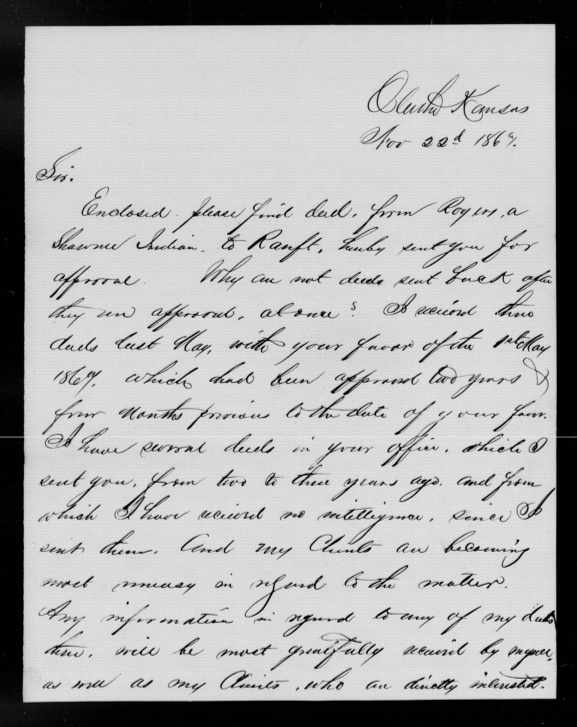 Olathe Kansas
Nov 22d 1867.
Sir.
Enclosed please find deed, from Rogers, a
Shawnee Indian, to Ranft, hereby sent you for
approval. Why are not deeds sent back after
they are approved, at once? I received three
deeds last May, with your favor of the 1st May
1867, which had been approved two years &
four months previous to the date of your favor.
I have several deeds in your office, which I
sent you, from two to three years ago. and from
which I have received no intelligence, since I
sent them. And my Clients are becoming
most uneasy in regard to the matter.
Any information in regard to any of my deeds
there, will be most gratefully received by myself,
as well as my Clients, who are directly interested.